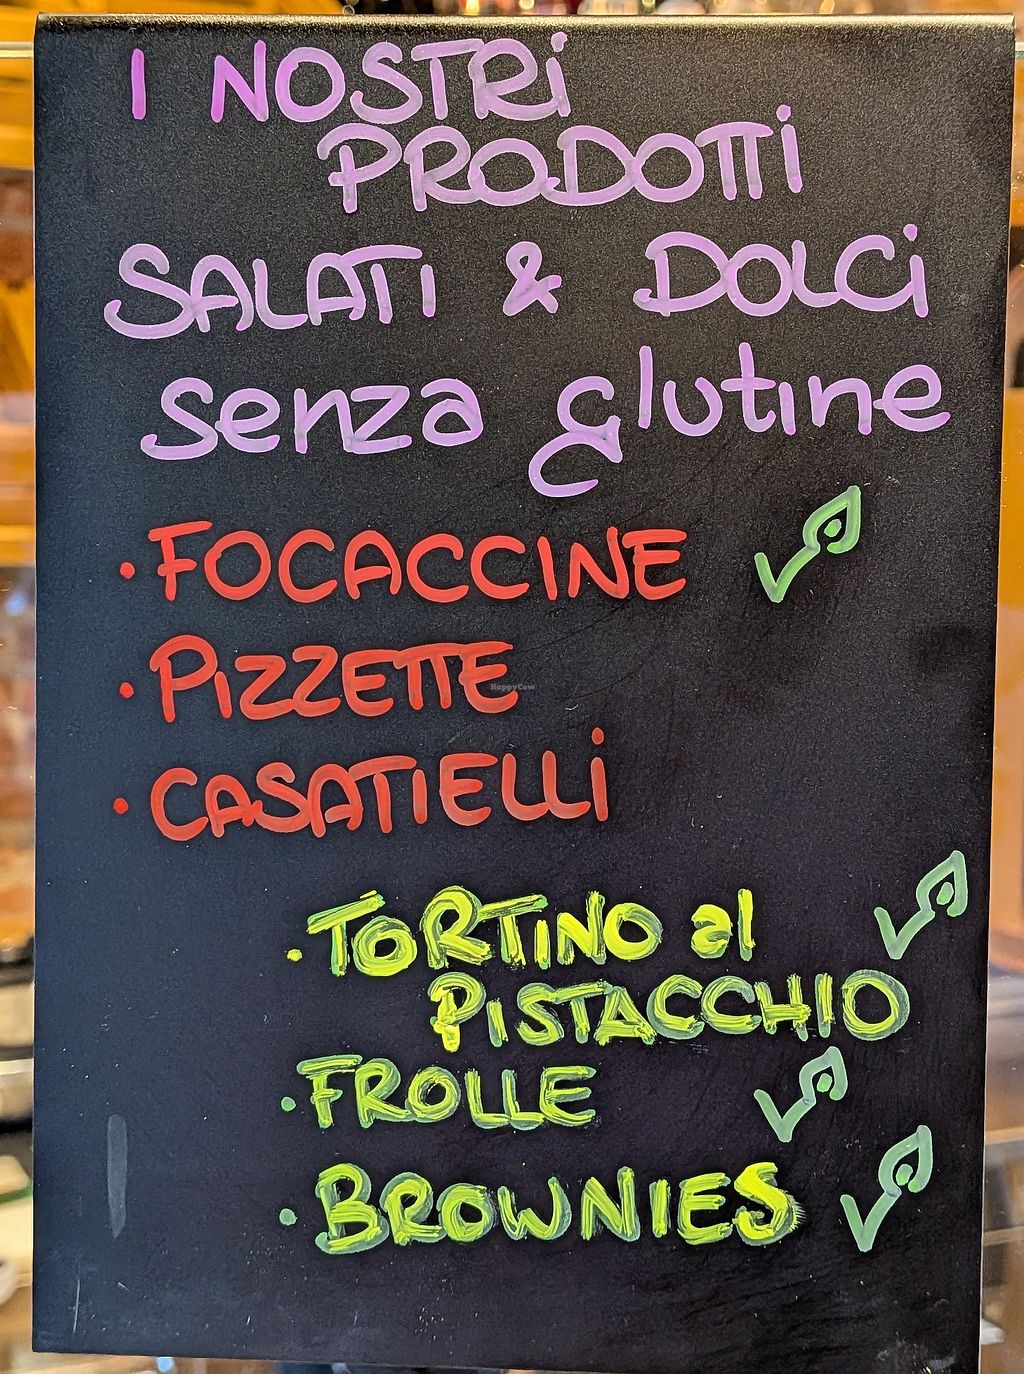 I NOSTRi
PRODOTTi
SALATi & DOLCi
senza glutine
• FOCACCINE
• PiZZETTE
HappyCow
• CASATIELLi
• TORTINO al
PISTACCHIO
• FROLLE
• BROWNIES